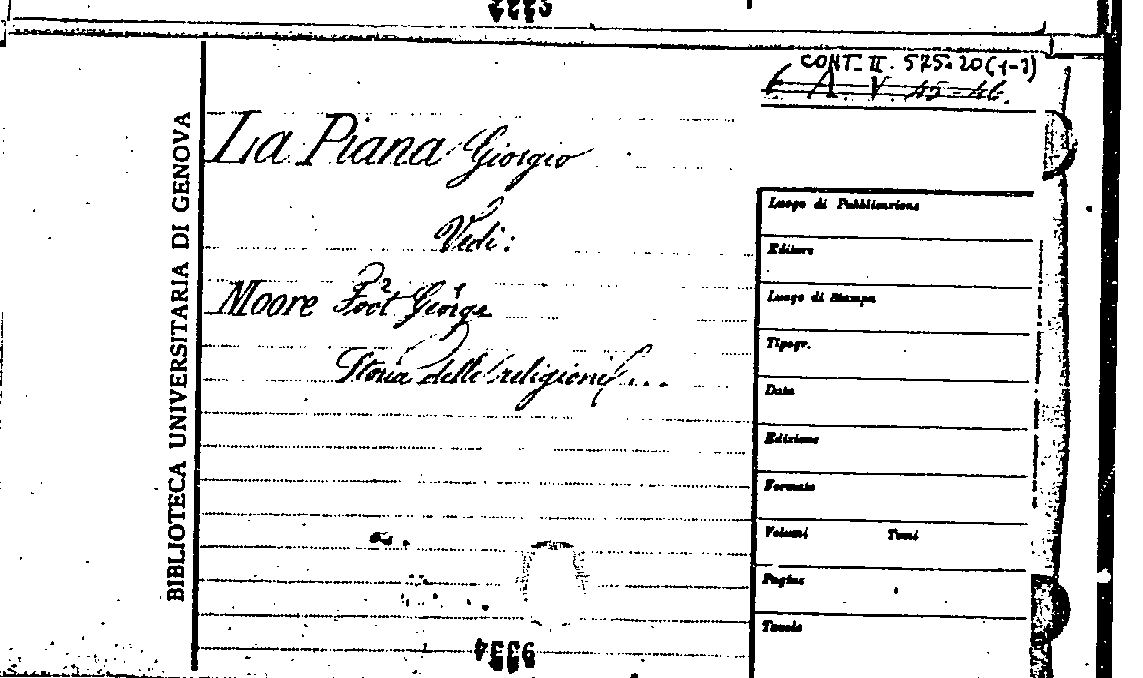 CONT. II. 575.20(1-2)
6 A. V. 45-46.
BIBLIOTECA UNIVERSITARIA DI GENOVA
La Piana Giorgio
Vedi:
Moore Foot² George¹
Storia delle religioni ...
Luogo di Pubblicazione
Editore
Luogo di Stampa
Tipogr.
Data
Edizione
Formato
Volumi Tomi
Pagine
Tavole